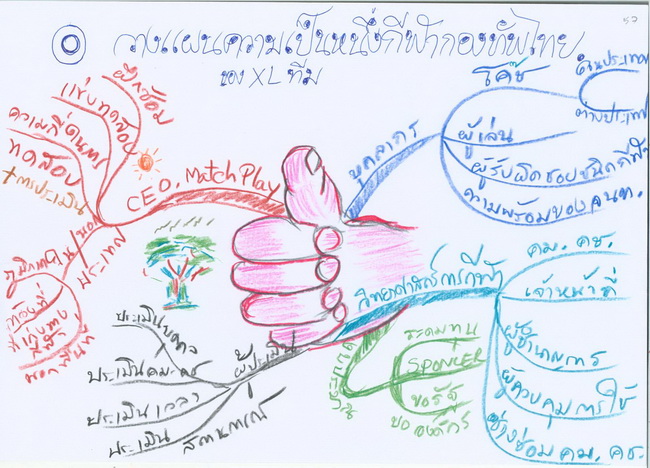 วางแผนความเป็นหนึ่งกีฬากองทัพไทย
ของ XL ทีม
ฝึกซ้อม
แข่งทดสอบ
ทดสอบ
+การประเมิน
CEO, Match Play
นอก
ประเทศ
บุคลากร
โค้ช
ในประเทศ
ต่างประเทศ
ผู้เล่น
ผู้รับผิดชอบชนิดกีฬา
ความพร้อมของ จนท.
วิทยาศาสตร์การกีฬา
คม. คช.
เจ้าหน้าที่
ผู้ชำนาญการ
ผู้ควบคุมการใช้
ช่างซ่อม คม. คช.
ระดมทุน
SPONCER
ขอรัฐ
ผู้ประเมิน
ประเมินบุคคล
ประเมินเวลา
ประเมิน
สถานการณ์